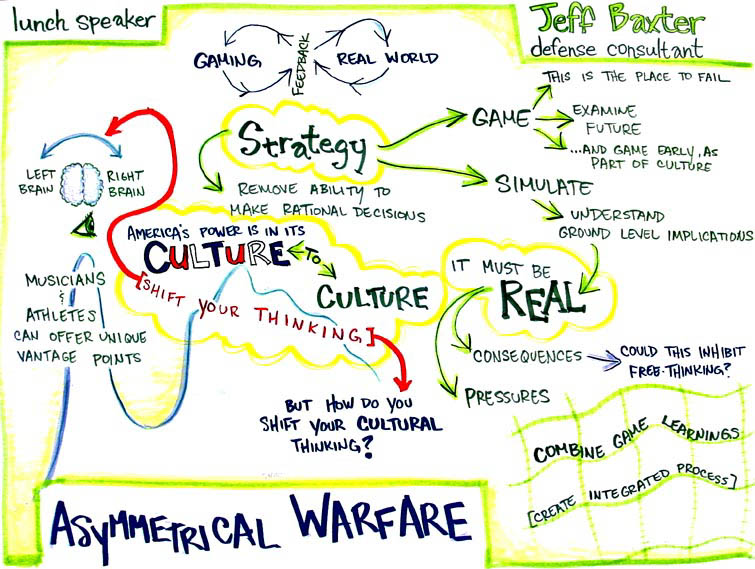 lunch speaker
Jeff Baxter
defense consultant
GAMING
FEEDBACK
REAL WORLD
Strategy
GAME
THIS IS THE PLACE TO FAIL
EXAMINE
FUTURE
...AND GAME EARLY, AS
PART OF CULTURE
SIMULATE
UNDERSTAND
GROUND LEVEL IMPLICATIONS
REMOVE ABILITY TO
MAKE RATIONAL DECISIONS
LEFT
BRAIN
RIGHT
BRAIN
AMERICA'S POWER IS IN ITS
CULTURE
TO
CULTURE
[SHIFT YOUR THINKING]
IT MUST BE
REAL
MUSICIANS
&
ATHLETES
CAN OFFER UNIQUE
VANTAGE POINTS
CONSEQUENCES
COULD THIS INHIBIT
FREE-THINKING?
PRESSURES
BUT HOW DO YOU
SHIFT YOUR CULTURAL
THINKING?
COMBINE GAME LEARNINGS
[CREATE INTEGRATED PROCESS]
ASYMMETRICAL WARFARE